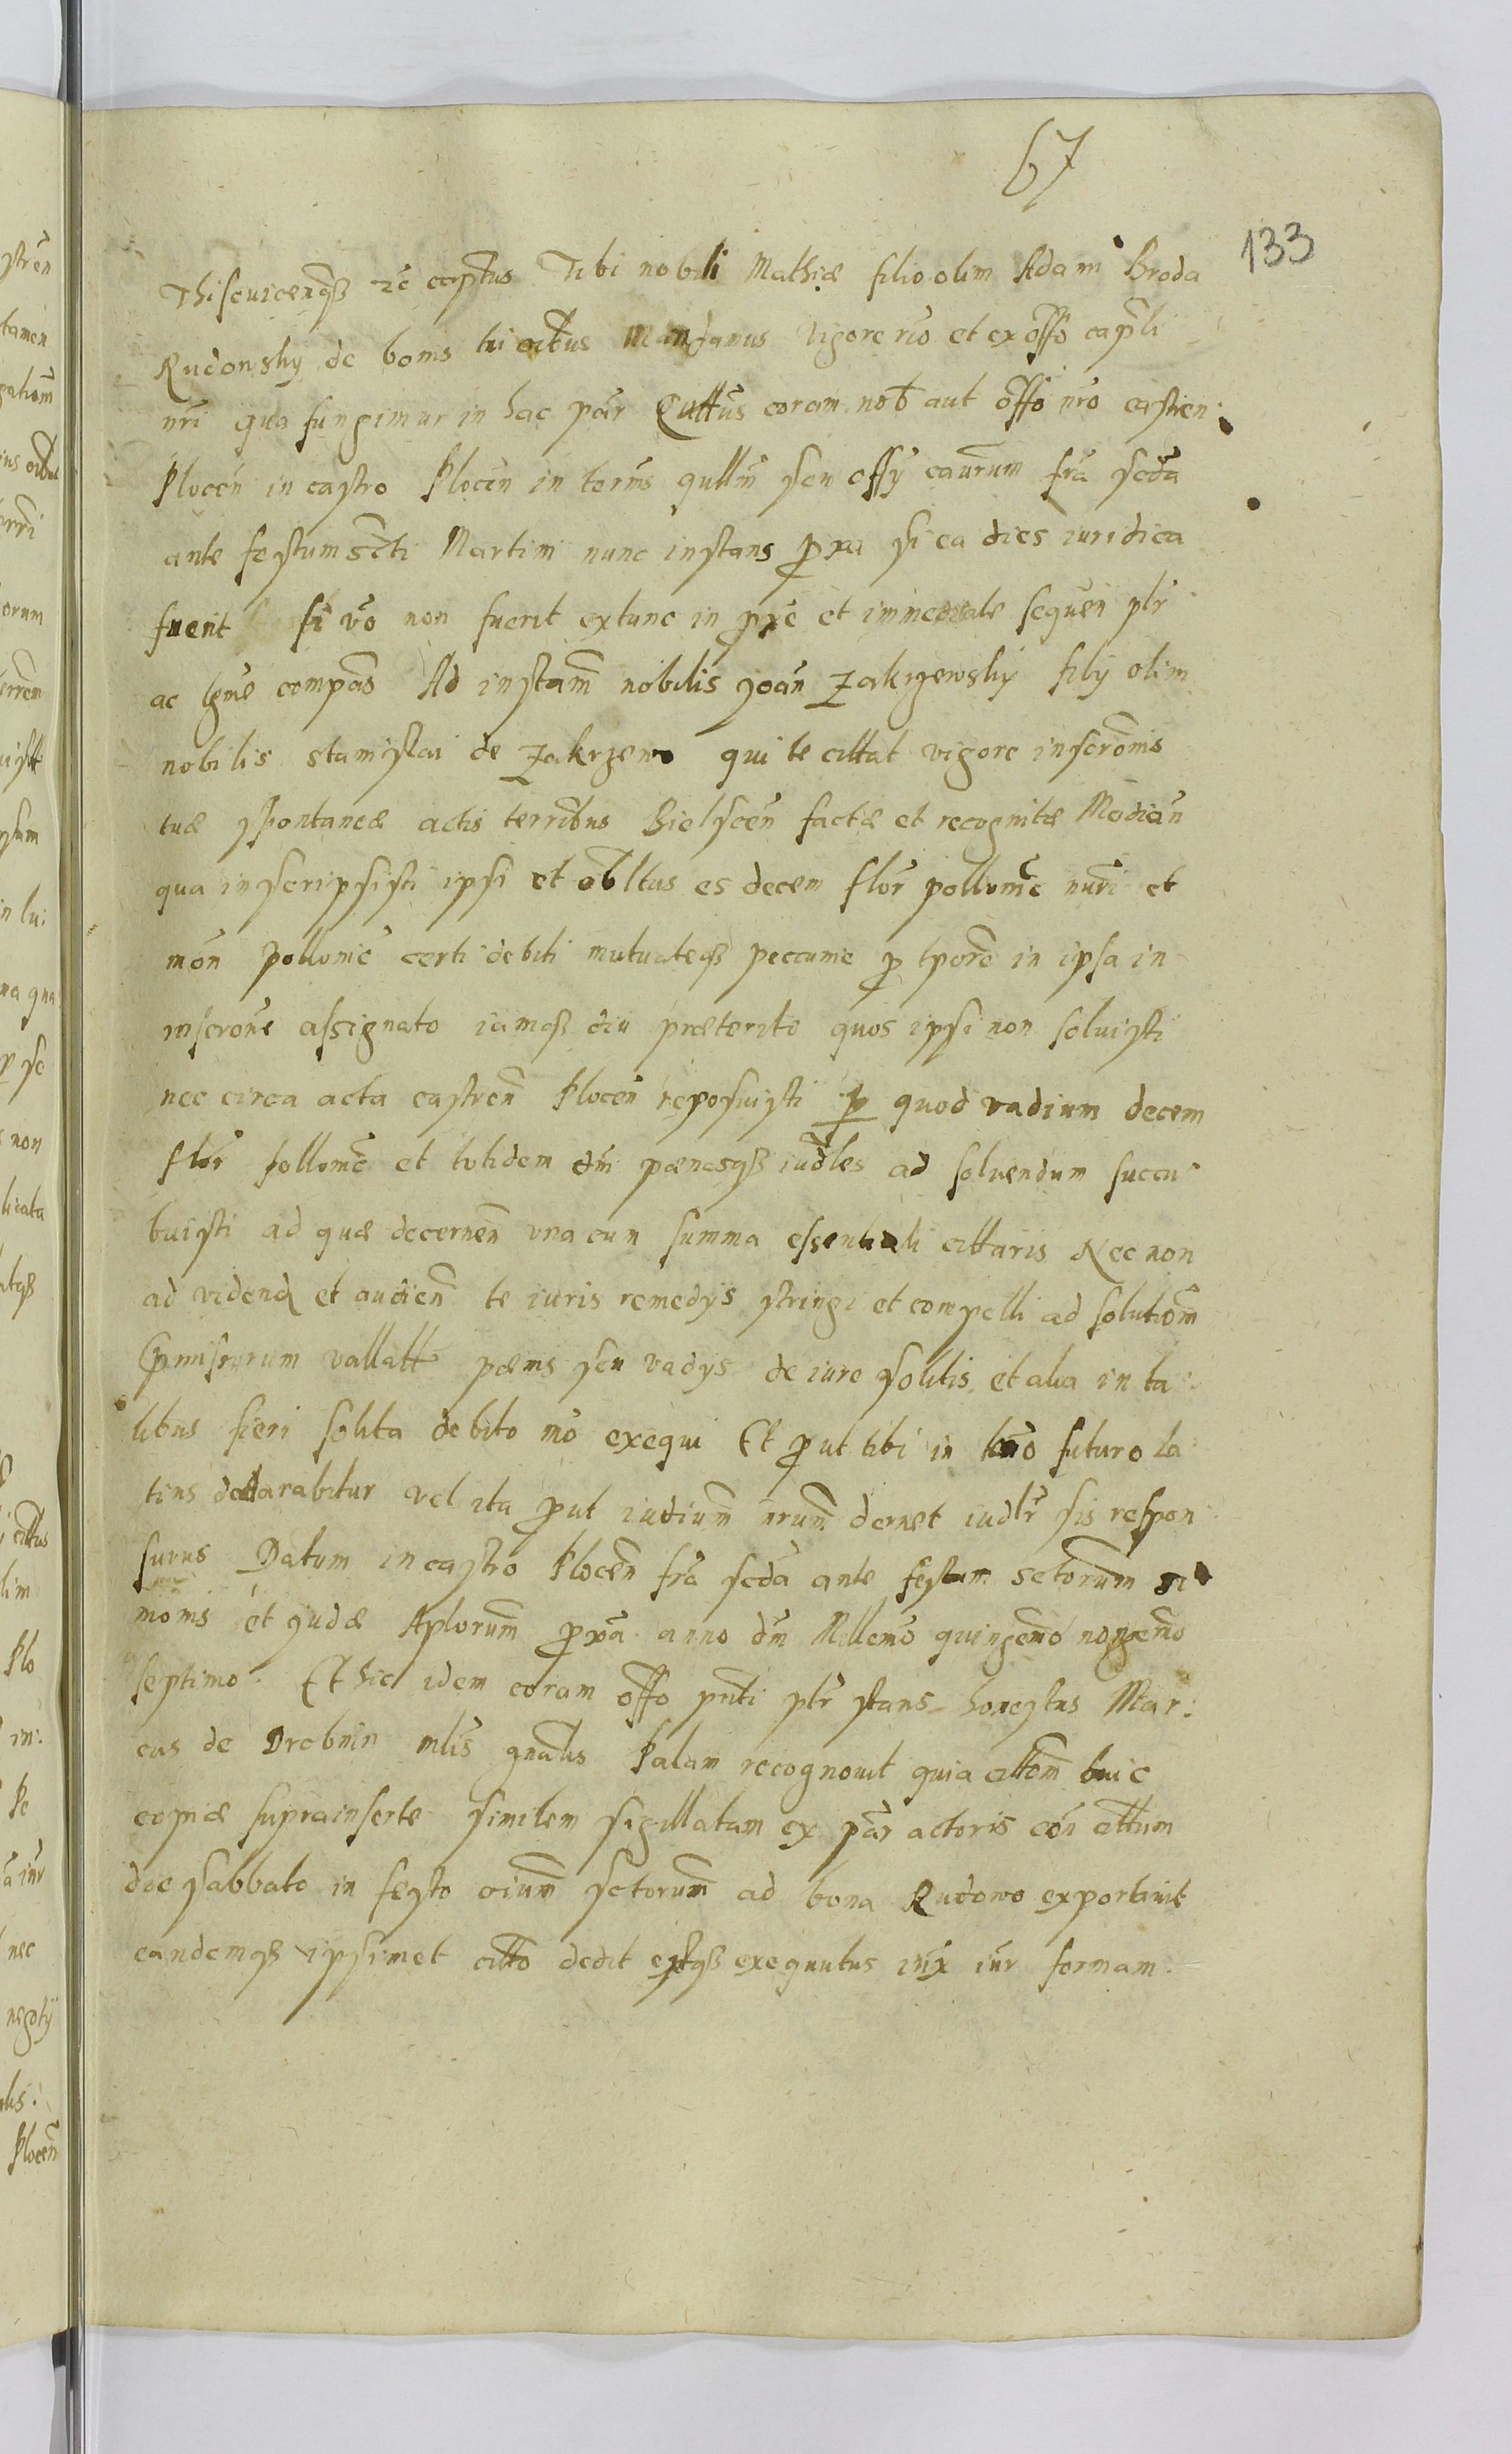 67
133
Thisovicenqꜗ zc captus Tibi nobili Mathiæ filio olim Adami Broda
Rudowsky de bonis tui oibus Mandamus Vigore rio et ex offo capli
nri quo fungimur in hac par Quattus coram nob aut offo nro castren
Plocen in castro Plocen in termis qullm seu offy caurum fra scda
ante festum scti Martini nunc instans pxa si ea dies iuridica
fuerit si vo non fuerit extunc in pxe et immediate sequen plr
ac tgme compas Ad instam nobilis Joan Zakrzewsky fily olim
nobilis stanislai de Zakrzewo qui te cittat vigore inscromis
tuæ spontaneæ actis terribus Bielscen factæ et recognitæ Median
qua inscripsisti ipsi et obltus es decem flor pollonic nuri et
mon Pollonic certi debiti mutuateqꜗ peccunie p tpore in ipsa in
inscrone assignato iamqꜗ diu præterito quos ipsi non solvisti
nec circa acta castren Plocen reposuisti p quod vadium decem
flor pollonic et totidem dni pœnasqꜗ iudles ad solvendum succu
buisti ad quæ decernen una cum summa essentiali cittaris Nec non
ad videnđ et audien te iuris remedys stringi et compelli ad solutiom
pmissorum vallatt pœnis seu vadys de iure solitis et alia in ta
libus fieri solita debito mo exequi Et put tibi in tmo futuro la
tius declarabitur vel ita put iudium nrum dernet iudlr sis respon
surus Datum in castro Plocen fra scda ante festum sctorum si
monis et Judæ Aplorum pxa anno dni Millemo quingemo nongemo
septimo. Et hic idem coram offo pnti plr stans honestus Mar:
cus de Drobnin mlis gnalis Palam recognovit quia cittom huic
copiæ suprainserte similem sigillatam ex par actoris con cittum
die sabbato in festo oium sctorum ad bona Rudowo exportavit
eandemqꜗ ipsimet citto dedit estqꜗ exequutus iux iur formam